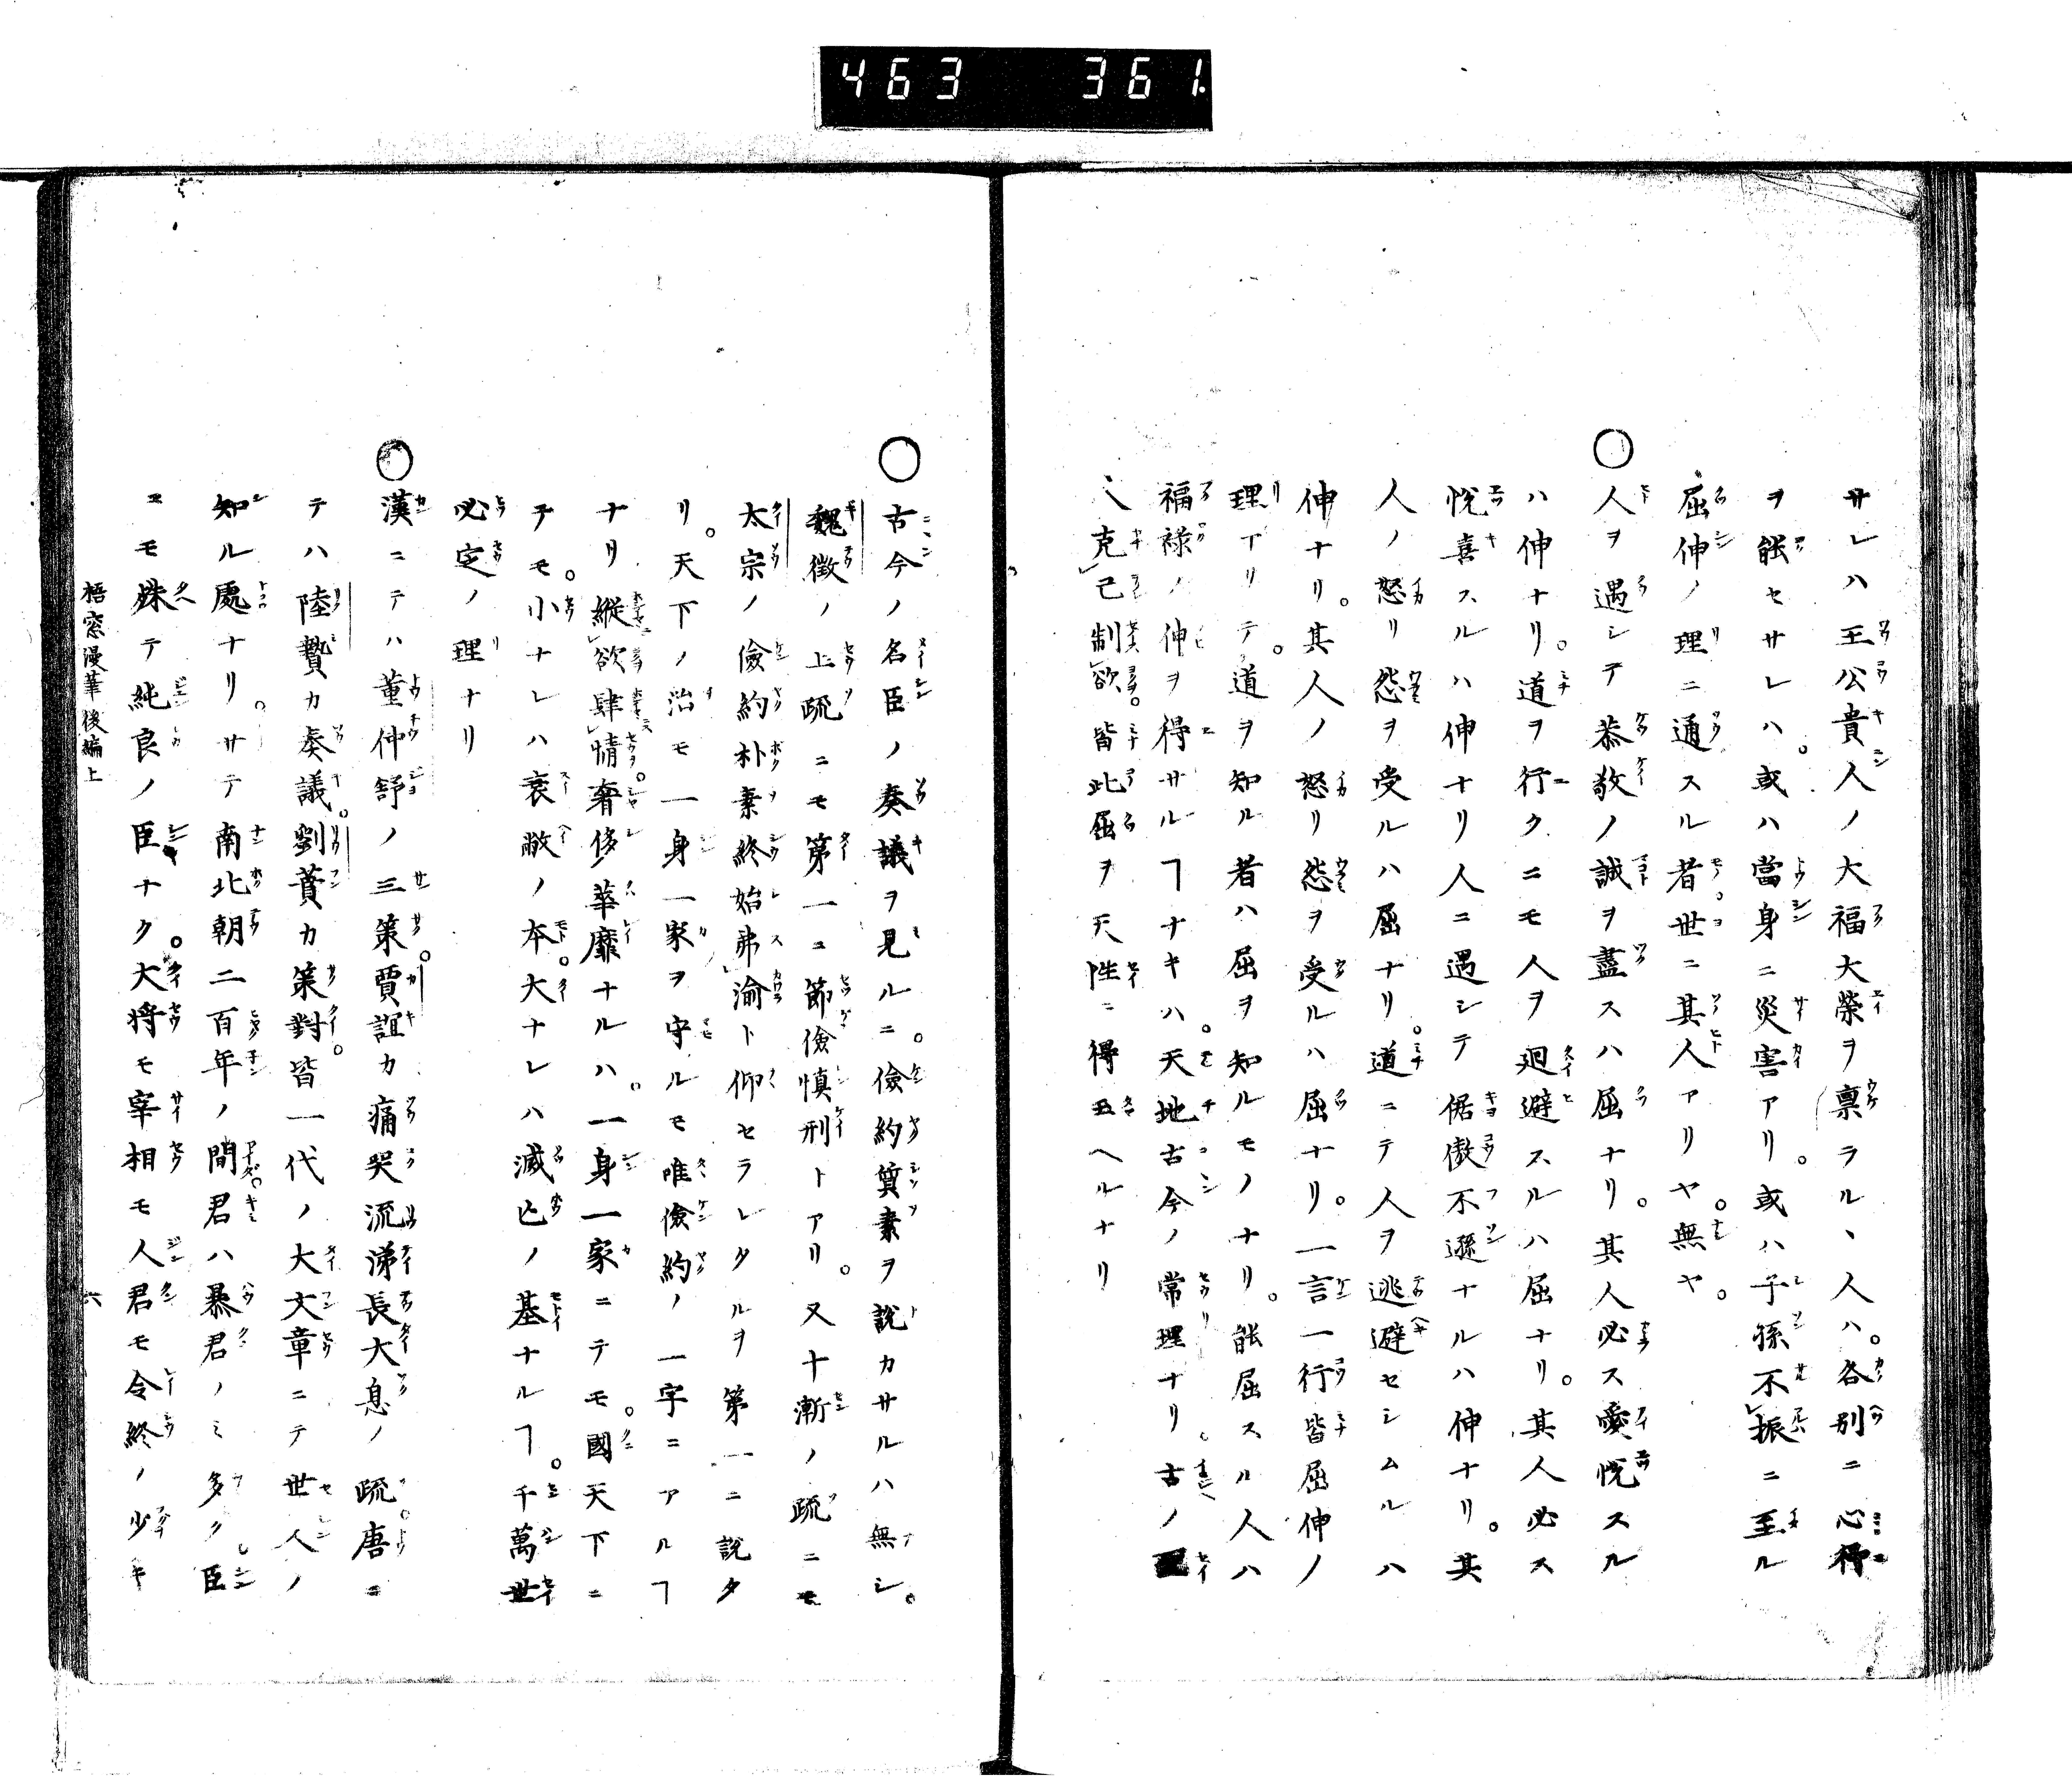 463 361.
サレハ王公貴人ノ大福大榮ヲ禀ラルヽ人ハ。各別ニ心得
ヲ能セサレハ。或ハ當身ニ災害アリ。或ハ子孫不振ニ至ル
屈伸ノ理ニ通スル者世ニ其人アリヤ。無ヤ。
○人ヲ遇シテ恭敬ノ誠ヲ盡スハ屈ナリ。其人必ス愛悦スル
ハ伸ナリ。道ヲ行クニモ人ヲ廻避スルハ屈ナリ。其人必ス
悦喜スルハ伸ナリ人ニ遇シテ倨傲不遜ナルハ伸ナリ。其
人ノ怒リ怨ヲ受ルハ屈ナリ。道ニテ人ヲ逃避セシムルハ
伸ナリ。其人ノ怒リ怨ヲ受ルハ屈ナリ。一言一行皆屈伸ノ
理アリテ。道ヲ知ル者ハ屈ヲ知ルモノナリ。能屈スル人ハ
福禄ノ伸ヲ得サルヿナキハ。天地古今ノ常理ナリ古ノ
人克己制欲。皆此屈ヲ天性ニ得玉ヘルナリ
○古今ノ名臣ノ奏議ヲ見ルニ。儉約質素ヲ説カサルハ無シ。
魏徴ノ上疏ニモ第一ニ節儉慎刑トアリ。又十漸ノ疏ニモ
太宗ノ儉約朴素終始弗渝ト仰セラレタルヲ第一ニ説タ
リ。天下ノ治モ一身一家ヲ守ルモ唯儉約ノ一字ニアルヿ
ナリ縱欲肆情奢侈華靡ナルハ。一身一家ニテモ。國天下ニ
テモ。小ナレハ衰敝ノ本。大ナレハ滅亡ノ基ナルヿ。千萬世
必定ノ理ナリ
○漢ニテハ董仲舒ノ三策。賈誼カ痛哭流涕長大息ノ疏。唐ニ
テハ陸贄カ奏議。劉蕡カ策對。皆一代ノ大文章ニテ世人ノ
知ル處ナリ。サテ南北朝二百年ノ間君ハ暴君ノミ多ク臣
ニモ殊テ純良ノ臣ナク。大将モ宰相モ人君モ令終ノ少キ
梧窓漫筆後編上 六